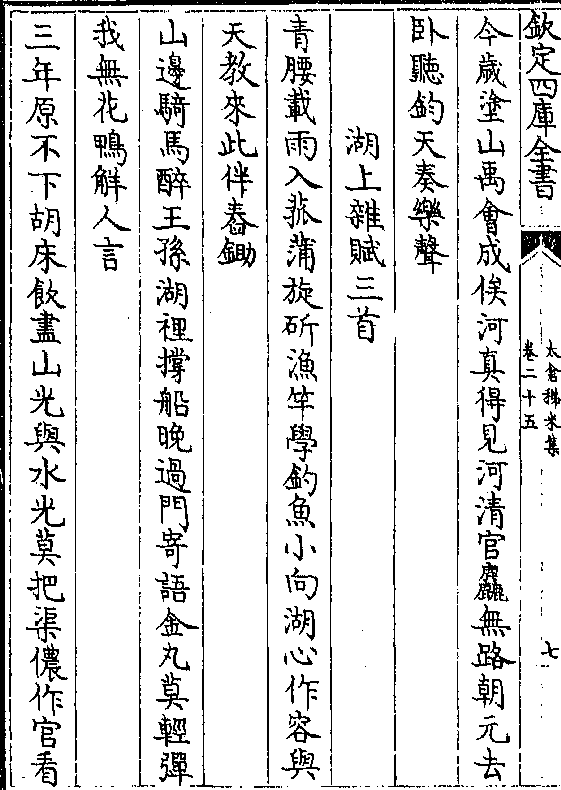 欽定四庫全書
太倉稊米集
卷二十五
七
今歲塗山禹會成俟河真得見河清官麤無路朝元去
卧聽鈞天奏樂聲
湖上雜賦三首
青腰載雨入菰蒲旋斫漁竿學釣魚小向湖心作容與
天教來此伴舂鋤
山邊騎馬醉王孫湖裡撑船晚過門寄語金丸莫輕彈
我無花鴨觧人言
三年原不下胡床飲盡山光與水光莫把渠儂作官看